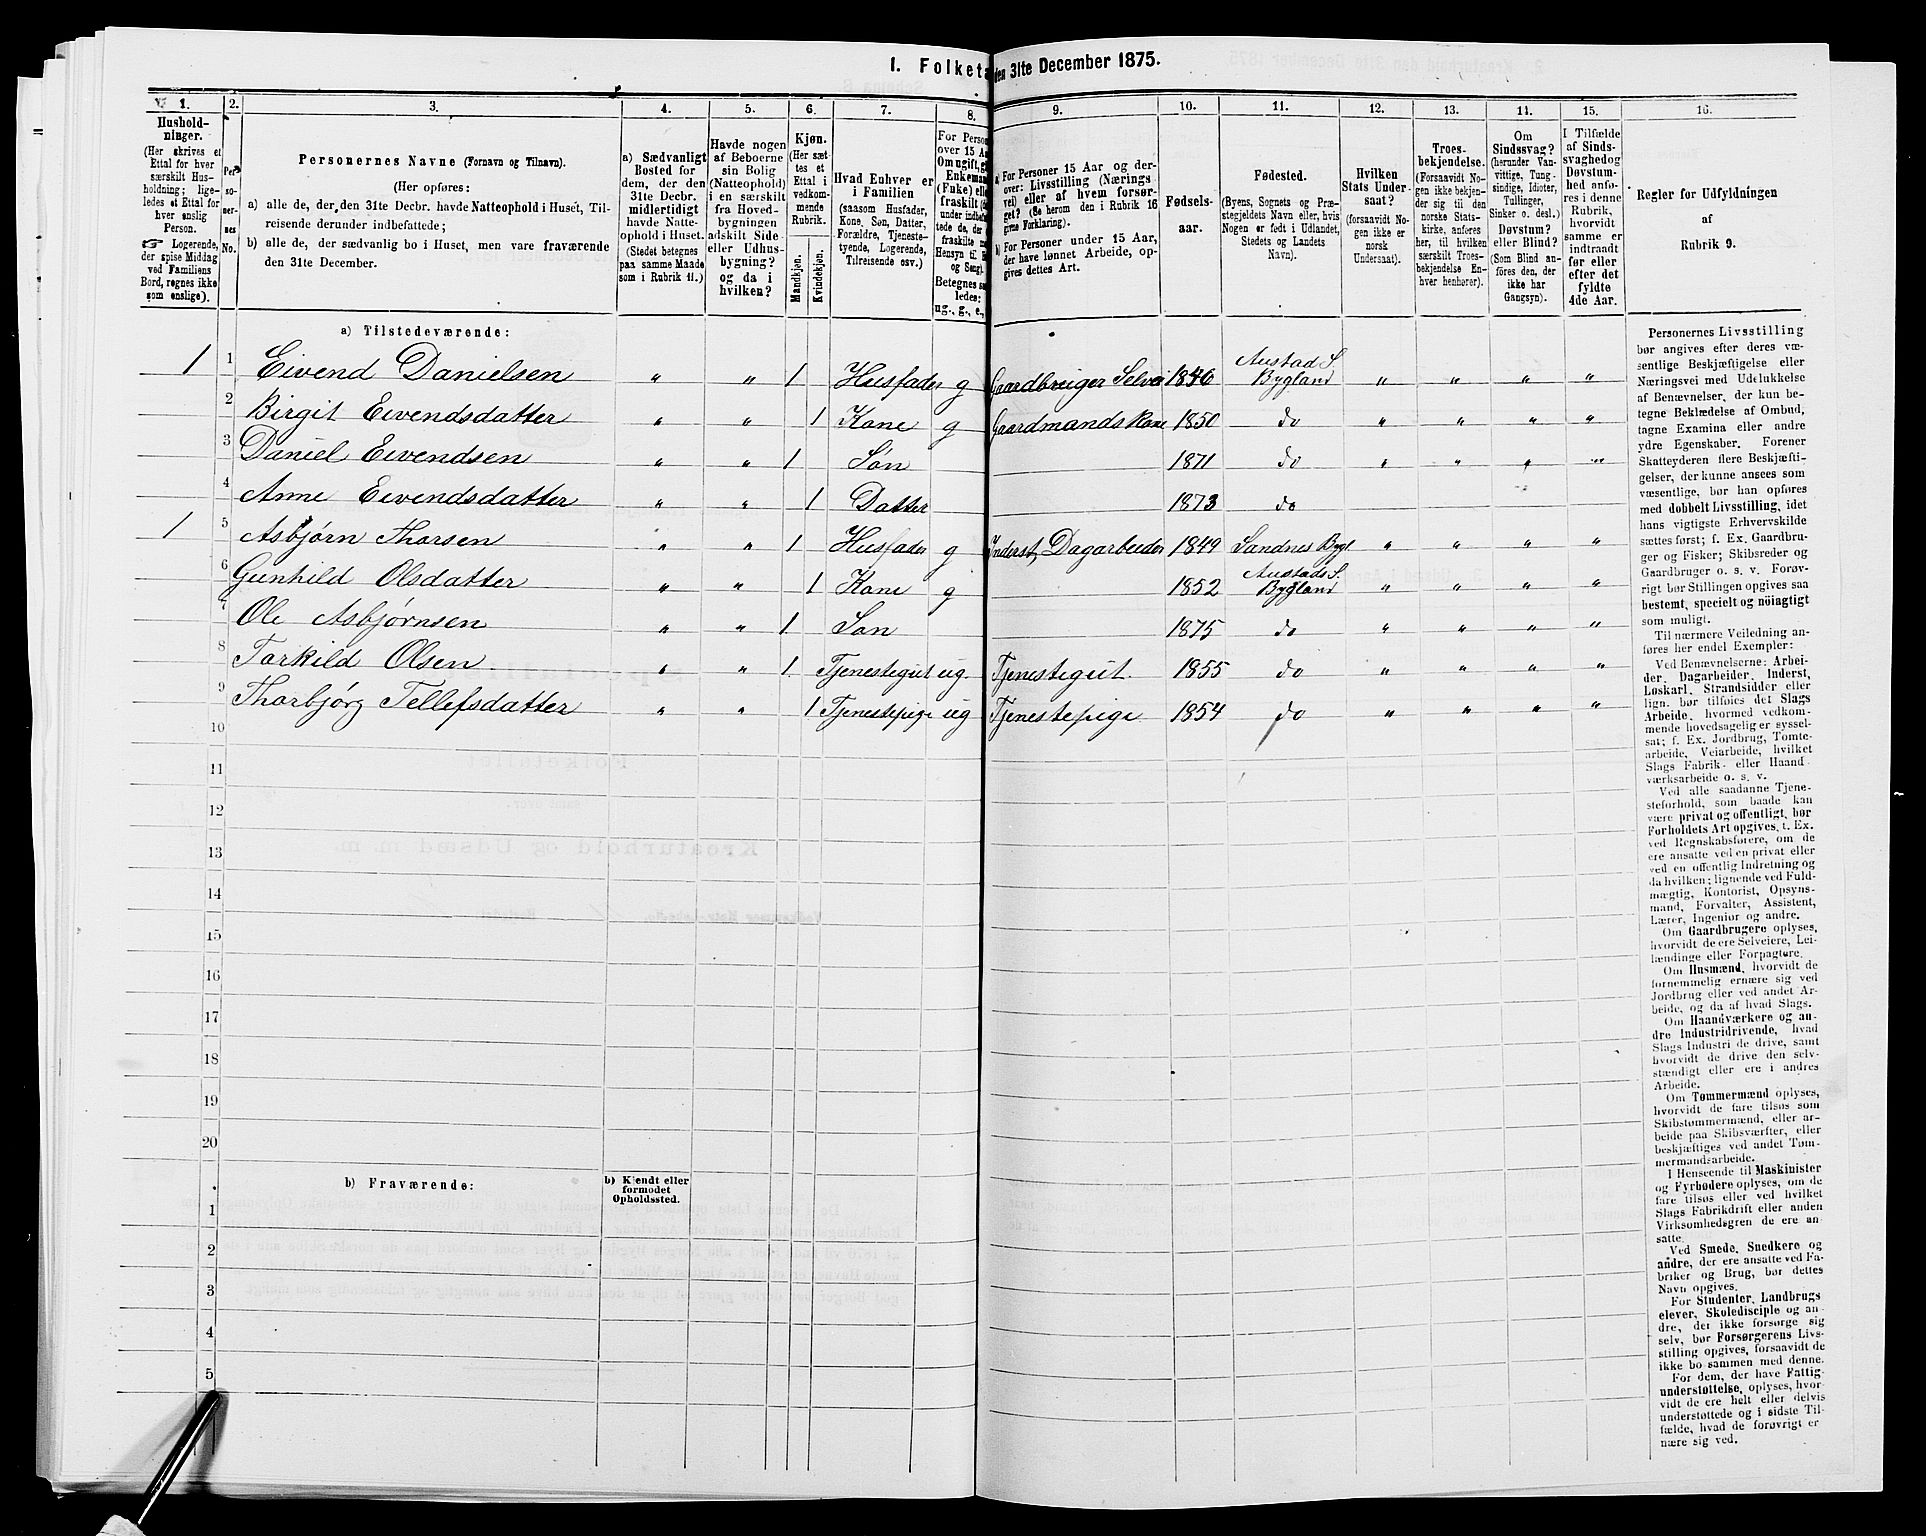 I. Folketa
den 31te December 1875.
1.
Hushold-
ninger.
(Her skrives et
Ettal for hver
særskilt Hus-
holdning; lige-
ledes et Ettal for
hver enslig
Person.
☞ Logerende,
der spise Middag
ved Familiens
Bord, regnes ikke
som enslige).
2.
Per-
so-
ner-
nes
No.
3.
Personernes Navne (Fornavn og Tilnavn).
(Her opføres:
a) alle de, der den 31te Decbr. havde Natteophold i Huset, Til-
reisende derunder indbefattede;
b) alle de, der sædvanlig bo i Huset, men vare fraværende
den 31te December.
4.
a) Sædvanligt
Bosted for
dem, der den
31te Decbr.
midlertidigt
havde Natte-
ophold i Huset.
(Stedet betegnes
paa samme Maade
som i Rubrik 11.)
5.
Havde nogen
af Beboerne
sin Bolig
(Natteophold)
i en særskilt
fra Hoved-
bygningen
adskilt Side-
eller Udhus-
bygning?
og da i
hvilken?
6.
Kjøn.
(Her sæt-
tes et
Ettal i
vedkom-
mende
Rubrik.
Mandkjøn.
Kvindekjøn.
7.
Hvad Enhver er
i Familien
(saasom Husfader,
Kone, Søn, Datter,
Forældre, Tjeneste-
tyende, Logerende,
Tilreisende osv.)
8.
For Person
over 15 A
Om ugift, g
Enkeman
(Fuke) ell
fraskilt (
under indbef
tede de, de
fraskilte m
Hensyn til
og Seng).
Betegnes s
ledes:
ug., g., e.,
9.
a) For Personer 15 Aar og der-
over: Livsstilling (Nærings
vei) eller af hvem forsør-
get? (Se herom den i Rubrik 16
givne Forklaring).
b) For Personer under 15 Aar,
der have lønnet Arbeide, op-
gives dettes Art.
10.
Fødsels-
aar.
11.
Fødested.
(Byens, Sognets og Præ-
stegjeldets Navn eller, hvis
Nogen er født i Udlandet,
Stedets og Landets
Navn).
12.
Hvilken
Stats Under-
saat?
(forsaavidt No-
gen ikke er
norsk
Undersaat).
13.
Troes-
bekjendelse.
(Forsaavidt No-
gen ikke bekjen-
der sig til den
norske Stats-
kirke, anføres
her, til hvilken
særskilt Troes-
bekjendelse En-
hver henhører).
14.
Om
Sindssvag?
(herunder Van-
vittige, Tung-
sindige, Idioter,
Tullinger,
Sinker o. desl.)
Døvstum?
eller Blind?
(Som Blind an-
føres den, der
ikke har
Gangsyn).
15.
I Tilfælde
af Sinds-
svaghed og
Døvstum-
hed anfø-
res i denne
Rubrik,
hvorvidt
samme er
indtraadt
før eller
efter det
fyldte
4de Aar.
16.
Regler for Udfyldningen
af
Rubrik 9.
a) Tilstedeværende:
1 1 Eivend Danielsen " " 1 Husfader g Gaardbruger Selvei 1846 Austad S. Bygland " " " "
2 Birgit Eivendsdatter " " 1 Kone g Gaardmands Kone 1850 do " " " "
3 Daniel Eivendsen " " 1 Søn 1871 do " " " "
4 Anne Eivendsdatter " " 1 Datter 1873 do
1 5 Asbjørn Thorsen " " 1 Husfader g Inderst, Dagarbeider 1849 Sandnes Bygl " " " "
6 Gunhild Olsdatter " " 1 Kone g 1852 Austads S. Bygland " " " "
7 Ole Asbjørnsen " " 1 Søn 1875 do " " " "
8 Tarkild Olsen " " 1 Tjenestegut ug. Tjenestegut. 1855 do " " " "
9 Thorbjørg Tellefsdatter " " 1 Tjenestepige ug Tjenestepige 1854 do " " " "
10
11
12
13
14
15
16
17
18
19
20
b) Fraværende:
b) Kjendt eller
formodet
Opholdssted.
1
2
3
4
5
Personernes Livsstilling
bør angives efter deres væ-
sentlige Beskjæftigelse eller
Næringsvei med Udelukkelse
af Benævnelser, der kun be-
tegne Beklædelse af Ombud,
tagne Examina eller andre
ydre Egenskaber. Forener
Skatteyderen flere Beskjæfti-
gelser, der kunne ansees som
væsentlige, bør han opføres
med dobbelt Livsstilling, idet
hans vigtigste Erhvervskilde
sættes først; f. Ex. Gaardbru-
ger og Fisker; Skibsreder og
Gaardbruger o. s. v. Forøv-
rigt bør Stillingen opgives saa
bestemt, specielt og nöiagtigt
som muligt.
Til nærmere Veiledning an-
føres her endel Exempler:
Ved Benævnelserne: Arbei-
der, Dagarbeider, Inderst,
Løskarl, Strandsidder eller
lign. bør tilføies det Slags
Arbeide, hvormed vedkom-
mende hovedsagelig er syssel-
sat; f. Ex. Jordbrug, Tomte-
arbeide, Veiarbeide, hvilket
Slags Fabrik- eller Haand
værksarbeide o. s. v.
Ved alle saadanne Tjene-
steforhold, som baade kan
være privat og offentligt, bør
Forholdets Art opgives, t. Ex.
ved Regnskabsførere, om de
ere ansatte ved en privat eller
ved en offentlig Indretning og
da hvilken; lignende ved Fuld-
mægtig, Kontorist, Opsyns-
mand, Forvalter, Assistent,
Lærer, Ingeniør og andre.
Om Gaardbrugere oplyses,
hvorvidt de ere Selveiere, Lei-
lændinge eller Forpagtere.
Om Husmænd, hvorvidt de
fornemmelig ernære sig ved
Jordbrug eller ved andet Ar-
beide, og da af hvad Slags.
Om Haandværkere og an-
dre Industridrivende, hvad
Slags Industri de drive, samt
hvorvidt de drive den selv-
stændigt eller ere i andres
Arbeide.
Om Tømmermænd oplyses,
hvorvidt de fare tilsøs som
Skibstømmermænd, eller ar-
beide paa Skibsværfter, eller
beskjæftiges ved andet Tøm-
mermandsarbeide.
I Henseende til Maskinister
og Fyrbødere oplyses, om de
fare tilsøs eller ved hvilket
Slags Fabrikdrift eller anden
Virksomhedsgren de ere an-
satte.
Ved Smede, Snedkere og
andre, der ere ansatte ved Fa-
briker og Brug, bør dettes
Navn opgives.
For Studenter, Landbrugs
elever, Skoledisciple og an-
dre, der ikke forsørge sig
selv, bør Forsørgerens Livs-
stilling opgives, forsaavidt de
ikke bo sammen med denne.
For dem, der have Fattig-
understøttelse, oplyses, hvor-
vidt de ere helt eller delvis
understøttede og i sidste Til-
fælde, hvad de forøvrigt er
nære sig ved.